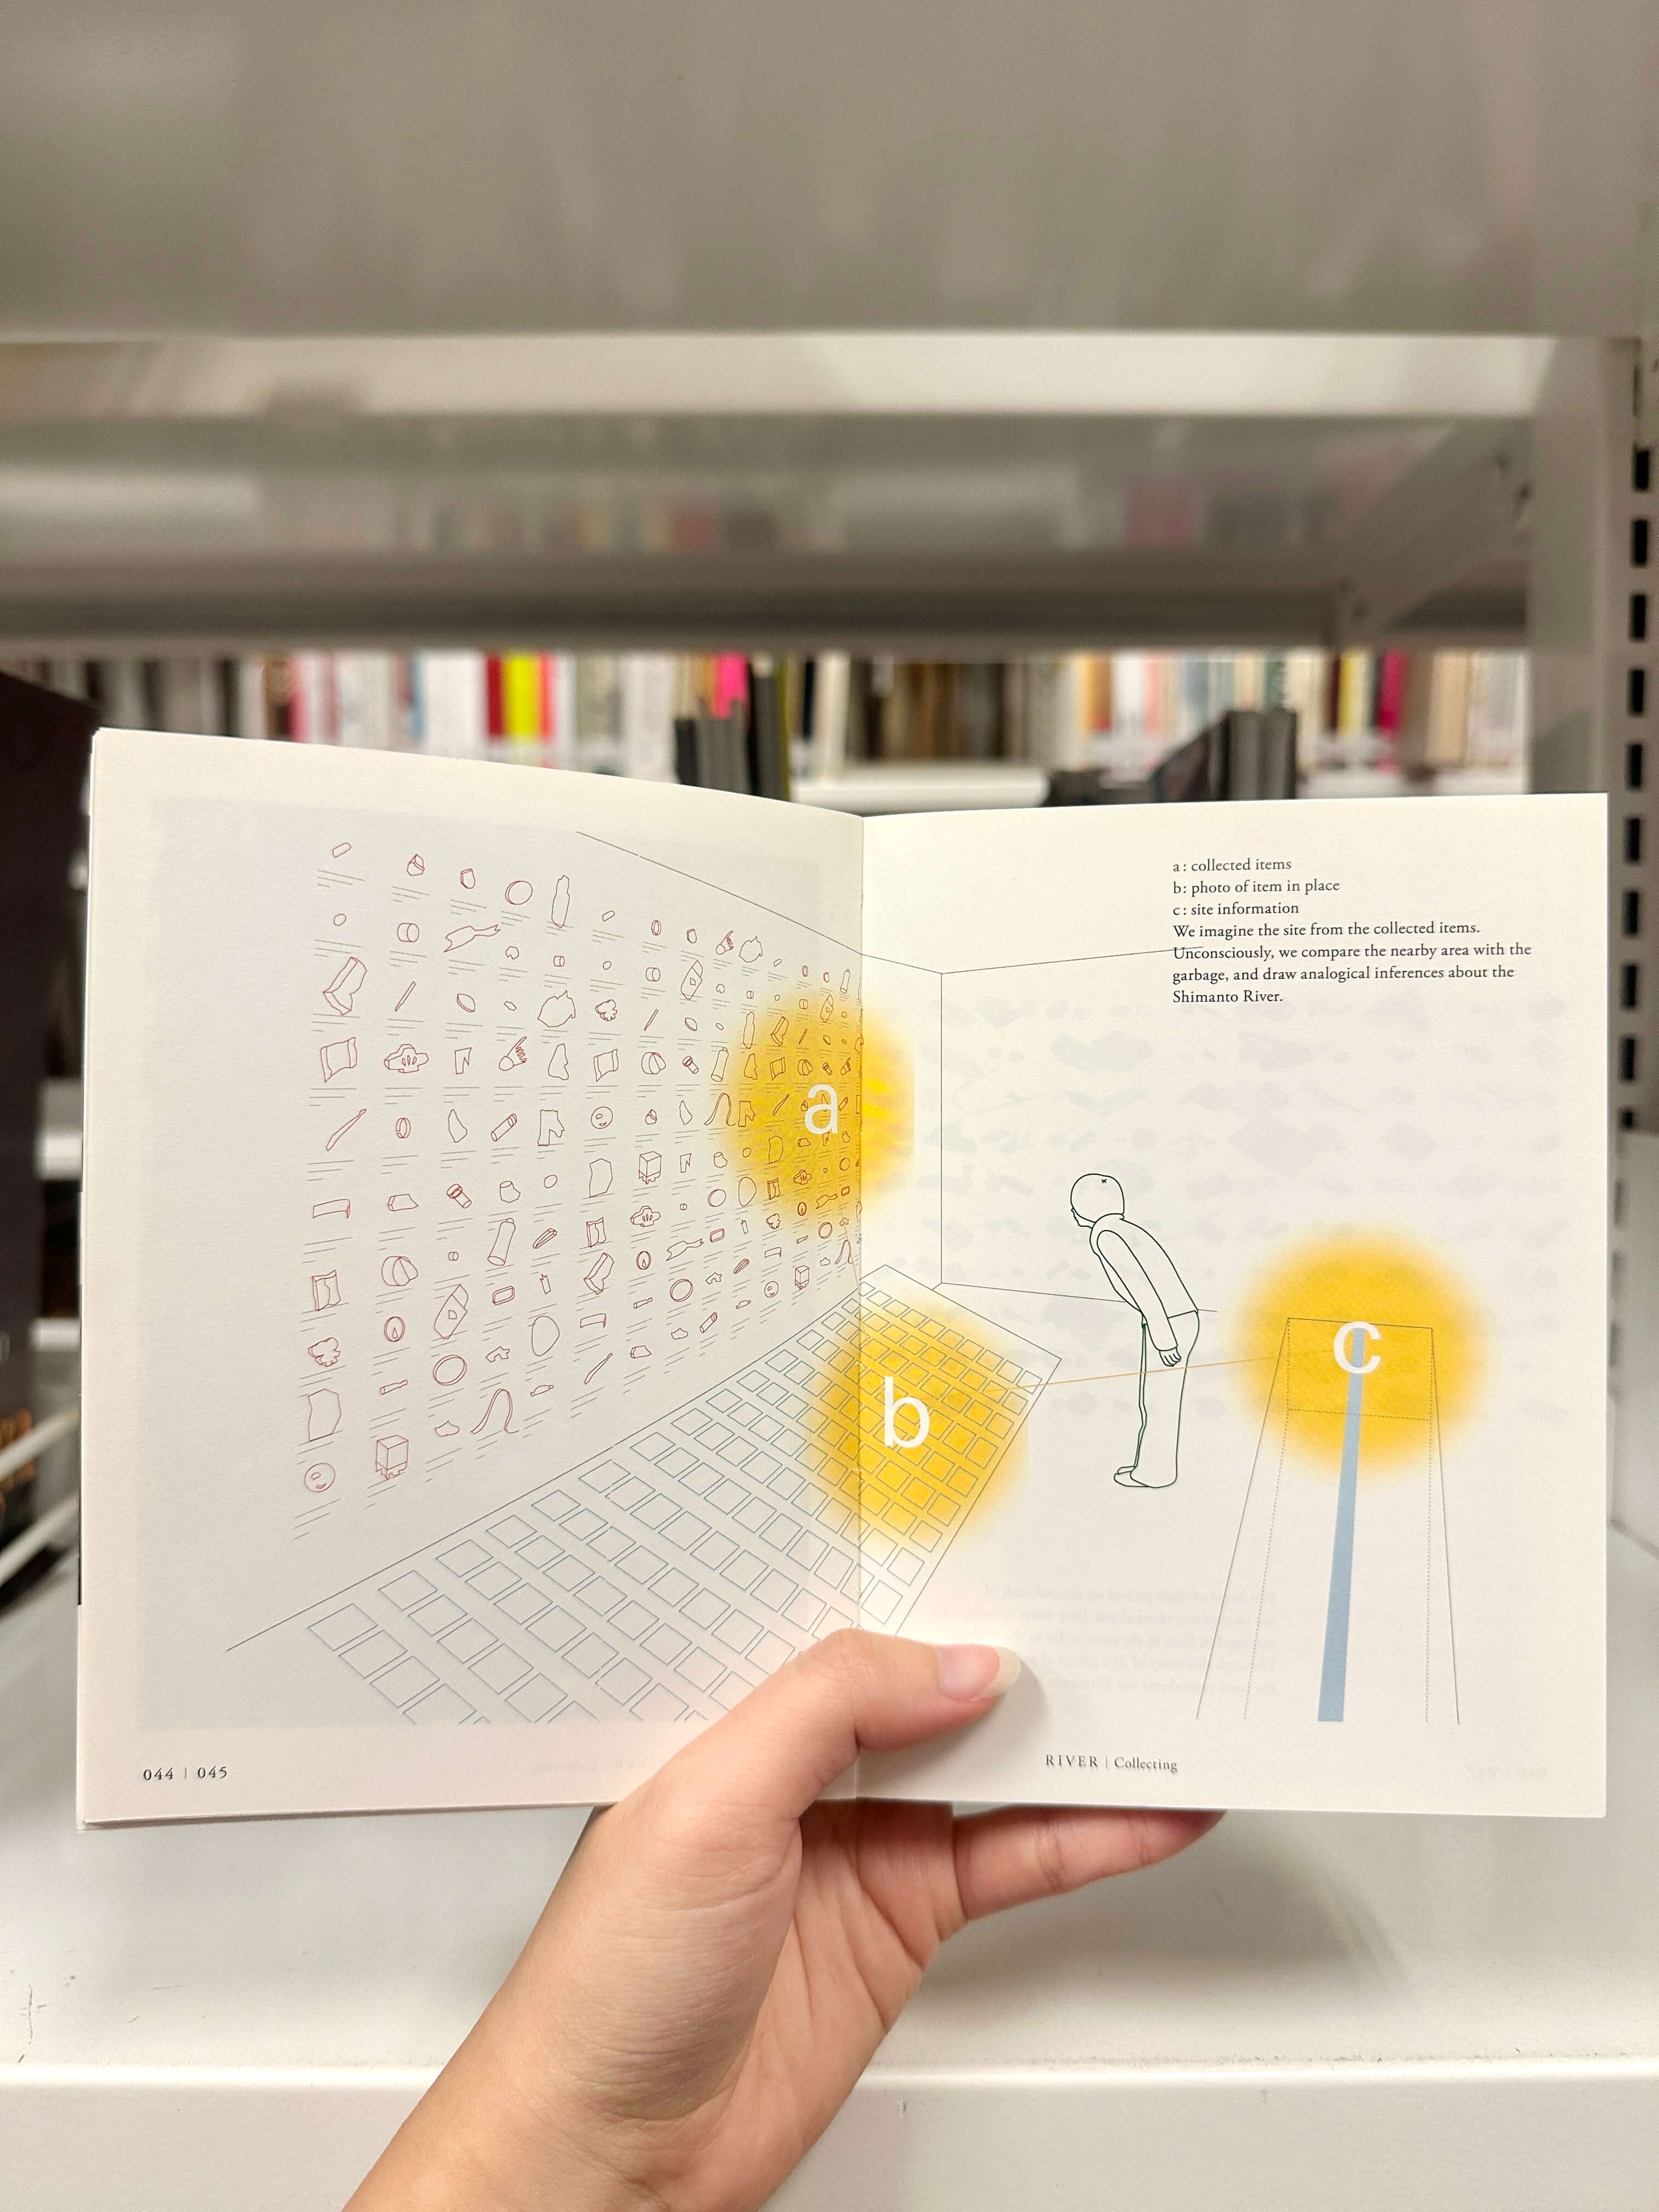 a : collected items
b : photo of item in place
c : site information
We imagine the site from the collected items.
Unconsciously, we compare the nearby area with the
garbage, and draw analogical inferences about the
Shimanto River.
a
b
c
044 | 045
RIVER | Collecting